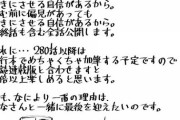 きにさせる自信があるから。
む前に偏見があっても
きにさせる自信があるから。
終話も含む全話公開します。
に…280話以降は
行本でめちゃくちゃ加筆する予定ですので
誌連載版と合わせますと
倍以上楽しめると思います。
も、なにより一番の理由は、
なさんと一緒に最後を迎えたいのです。